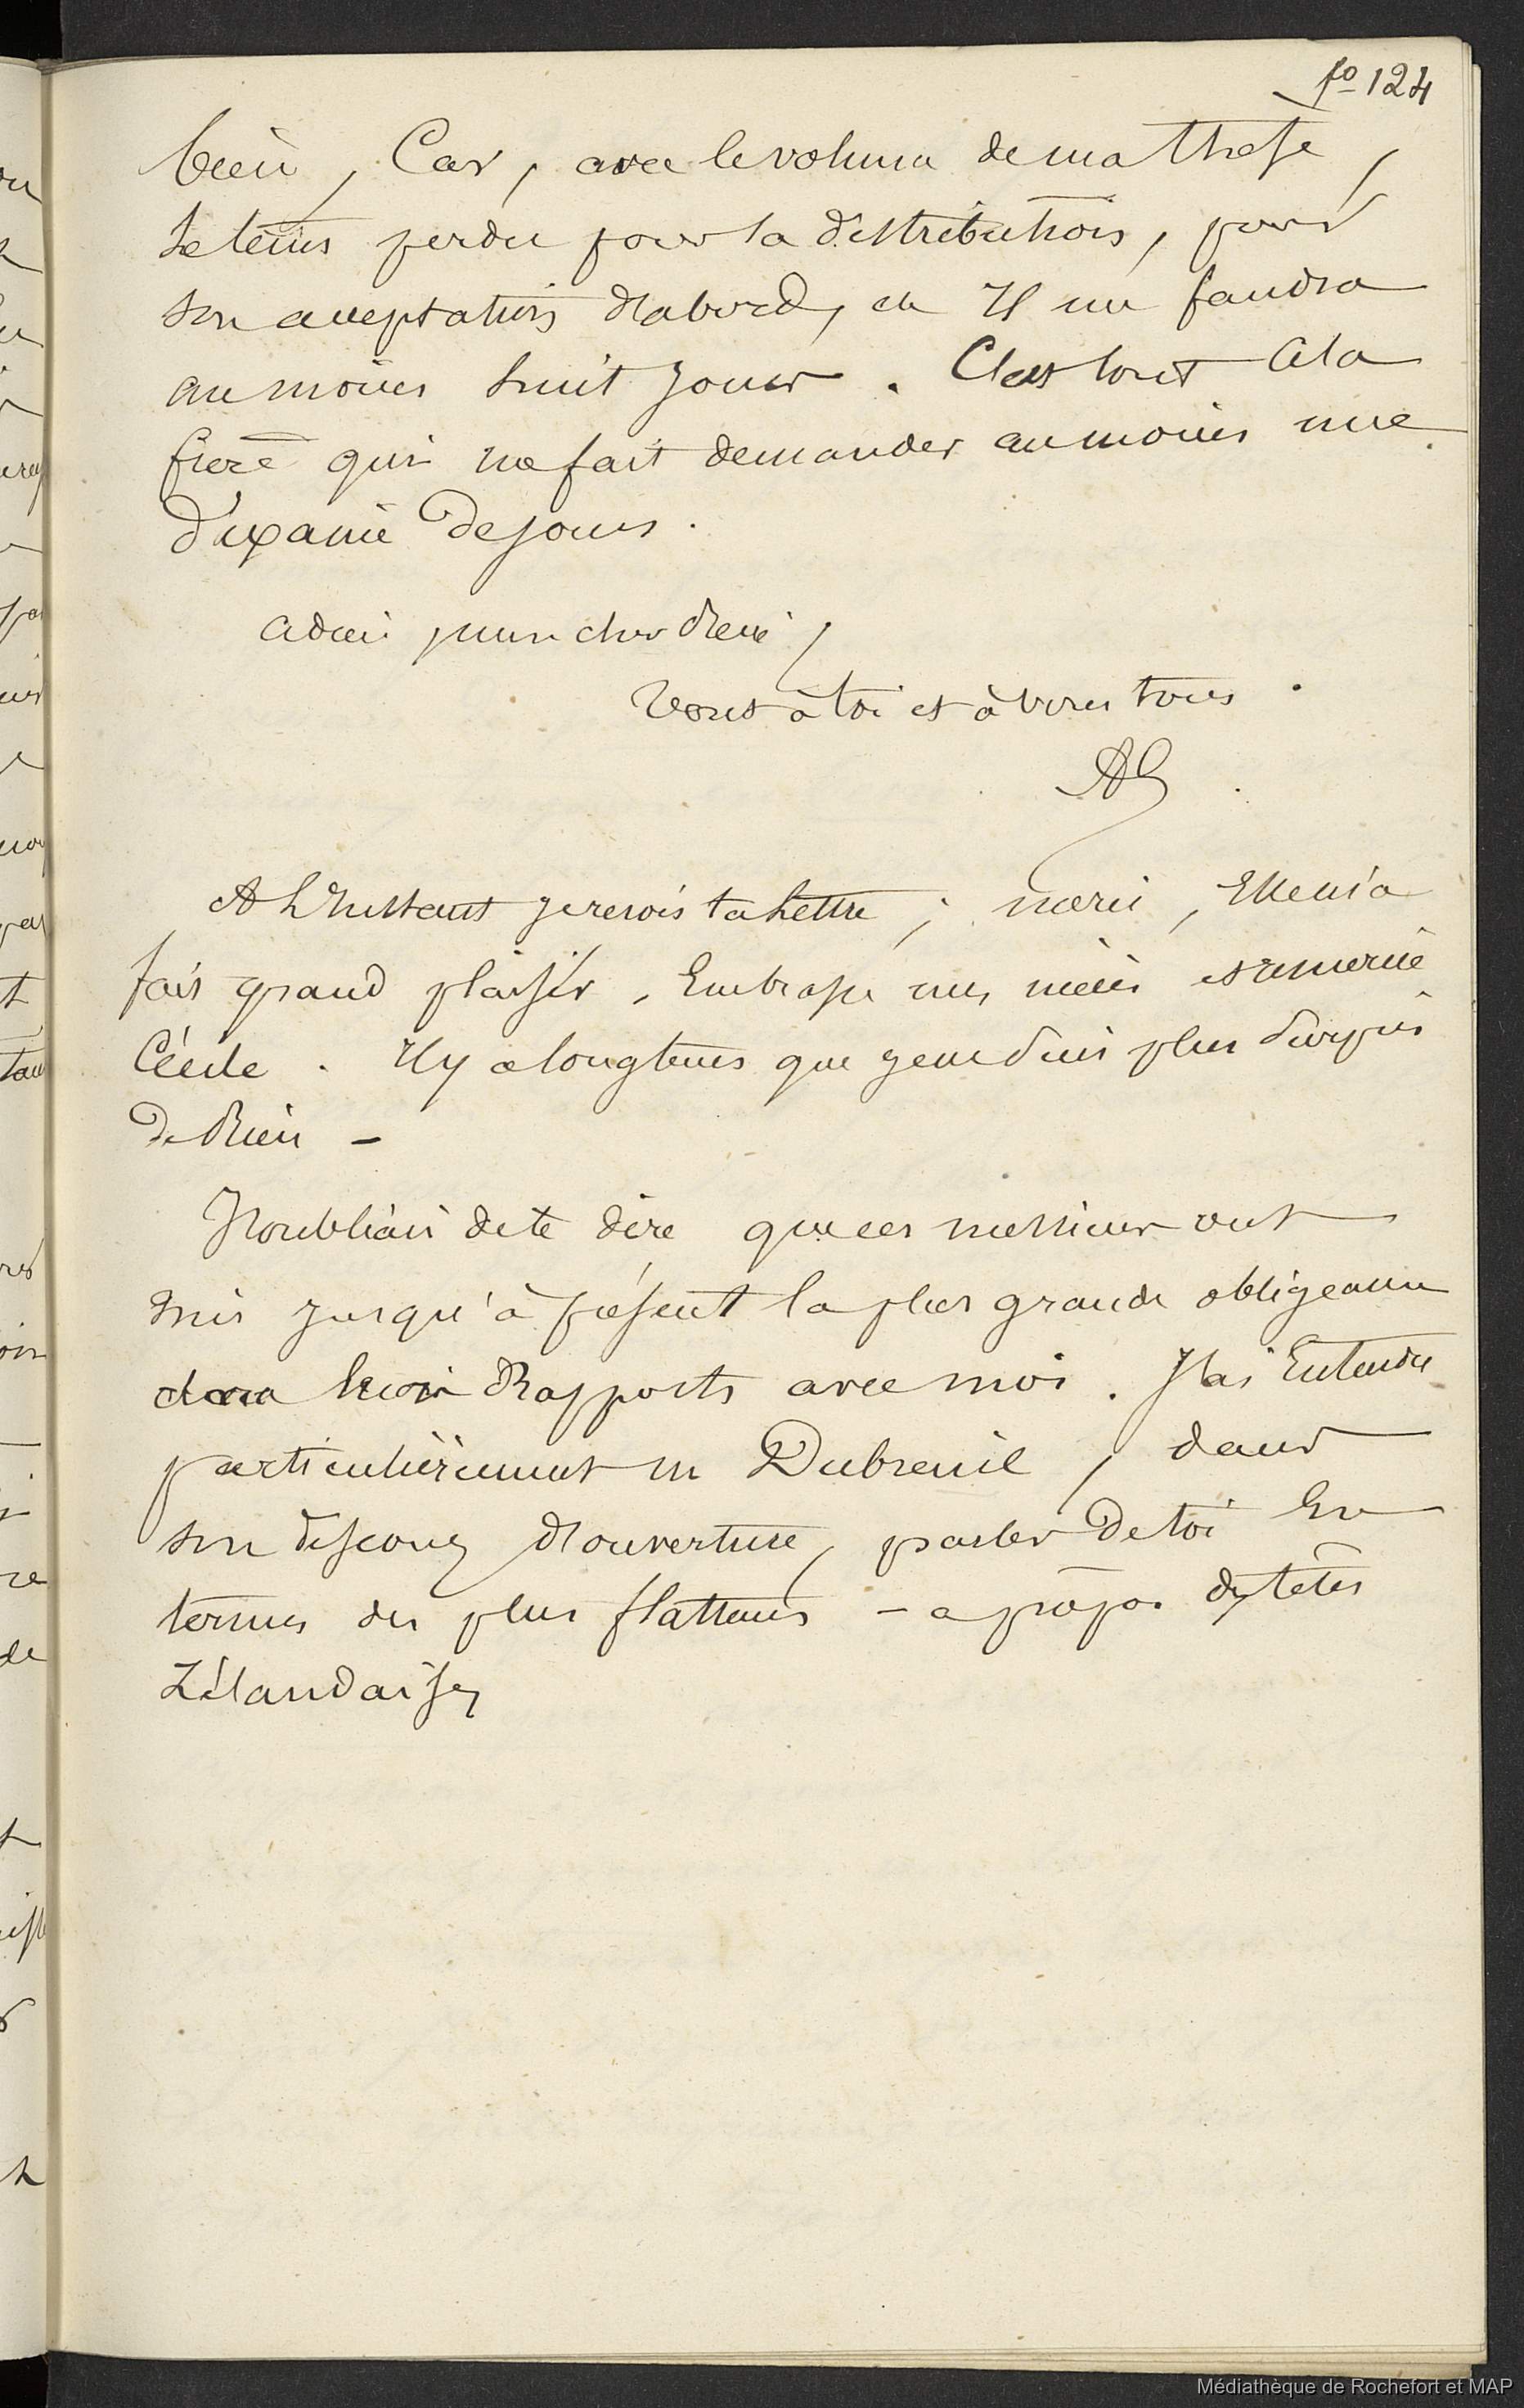 fo 124
bien, Car, avec le volume de ma thèse,
le tems perdu pour la distribution, pour
son acceptation d'abord, etc Il me faudra
au moins huit jours. C'est tout cela
frère qui me fait demander au moins une
dixaine de jours.
adieu mon cher René,
Tout à toi et à vous tous.
AL
A L'Instant je reçois ta Lettre; merci, Elle m'a
fait grand plaisir. Embrasse nos nièces et remercie
Cécile. Il y a longtems que je ne suis plus surpris
de Rien -
J'oubliais de te dire que ces messieurs ont
mis jusqu'à présent la plus grande obligeance
dans leurs Rapports avec moi. J'ai Entendu
particulièrement M Dubreuil, dans
son discours d'ouverture, parler de toi En
termes des plus flatteurs - a propos des têtes
Zélandaises
Médiathèque de Rochefort et MAP